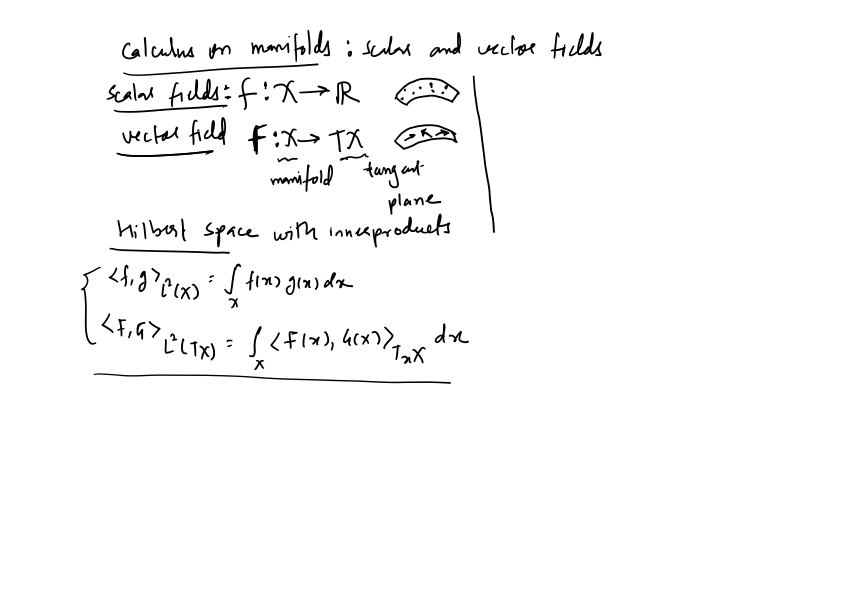 Calculus on manifolds : scalar and vector fields
scalar fields: f : X → ℝ
vector field F : X → TX
manifold tangent
plane
Hilbert space with innerproducts
<f, g>_{L²(X)} = ∫_X f(x) g(x) dx
<F, G>_{L²(TX)} = ∫_X <F(x), G(x)>_{T_xX} dx